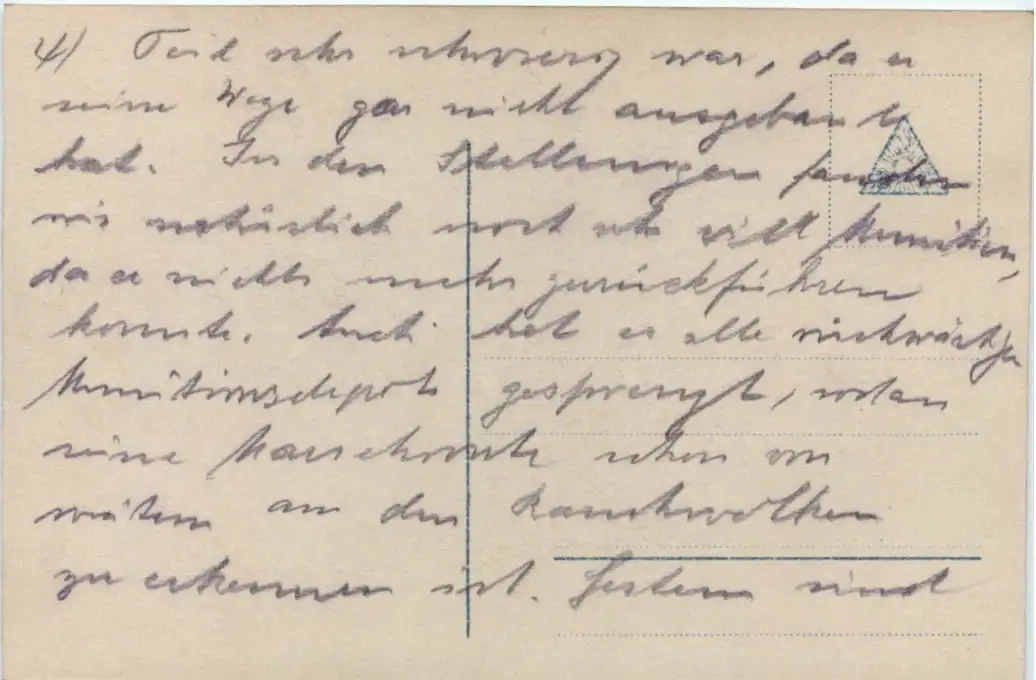 4) Teil sehr schwierig war, da er
seine Wege gar nicht ausgebaut
hat. In den Stellungen fanden
wir natürlich noch sehr viel Munition,
da er nichts mehr zurückführen
konnte. Auch hat er alle rückwärtige
Munitionsdepots gesprengt, sodaß
seine Marschroute schon von
weitem an den Rauchwolken
zu erkennen ist. Gestern sind